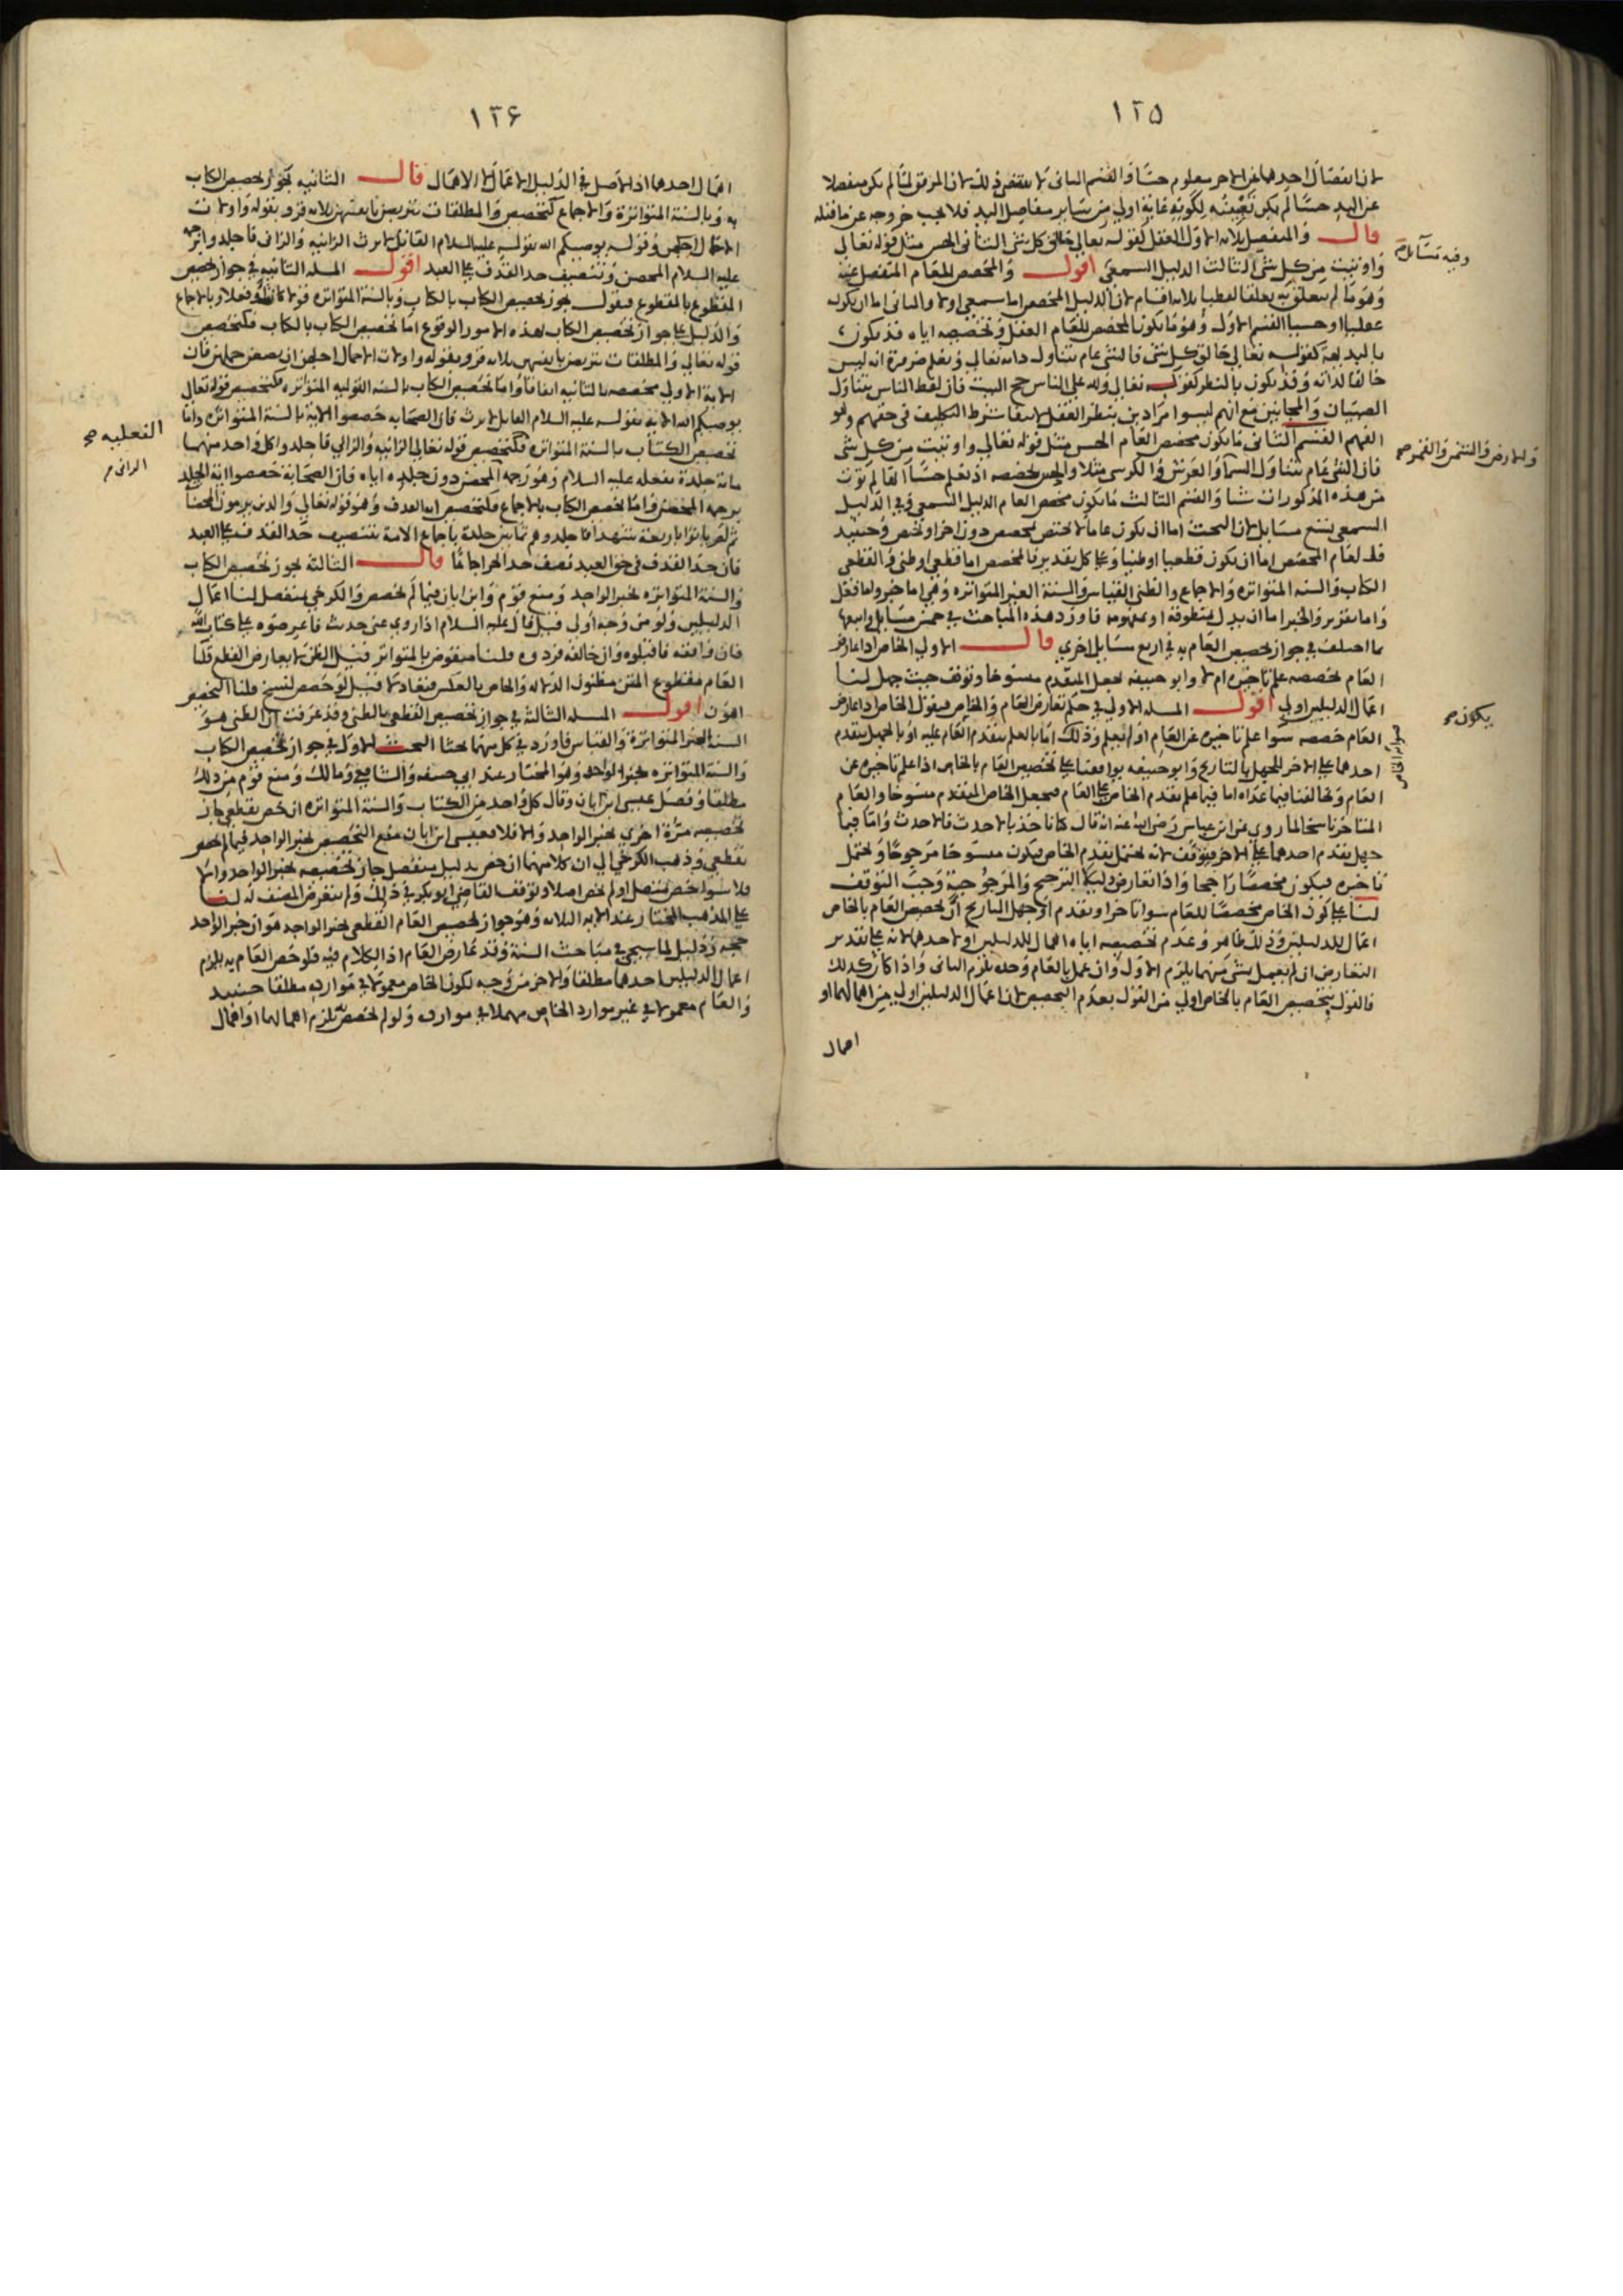 ١٢٥
لان انفصال احدهما عن الاخر معلوم حسا والقسم الثاني لا يقتضي ذلك لان المرفق لما لم يكن منفصلا
عن اليد حسا لم يكن تعيينه لكونه غاية اولى من ساير مفاصل اليد فلا يجب خروجه عن ما قبله
قال والمنفصل ثلاثة الاول العقل كقوله تعالى خالق كل شئ الثاني الحس مثل قوله تعالى
واوتيت من كل شئ الثالث الدليل السمعي اقول والمخصص للعام المنفصل عنه
وهو ما لم يتعلق به تعلقا لفظيا ثلاثة اقسام لان الدليل المخصص اما سمعي اولا والثاني اما ان يكون
عقليا او حسيا القسم الاول وهو ما يكون المخصص للعام العقل وتخصيصه اياه قد يكون
بالبديهة كقوله تعالى خالق كل شئ فالشئ عام يتناول ذاته تعالى ونعلم ضرورة انه ليس
خالقا لذاته وقد يكون بالنظر كقوله تعالى ولله على الناس حج البيت فان لفظ الناس يتناول
الصبيان والمجانين مع انهم ليسوا مرادين بنظر العقل لانتفا شرط التكليف في حقهم وهو
الفهم القسم الثاني ما يكون مخصص العام الحس مثل قوله تعالى واوتيت من كل شئ
فان الشئ عام يتناول السما والعرش والكرسي مثلا والحس يخصصه اذ نعلم حسا انها لم تؤت
من هذه المذكورات شيا والقسم الثالث ما يكون مخصص العام الدليل السمعي وفي الدليل
السمعي تسع مسايل لان البحث اما ان يكون عاما لا يختص بمخصص دون اخر او يختص وحينيد
فالعام المخصص اما ان يكون قطعيا او ظنيا وعلى كل تقدير فالمخصص اما قطعي او ظني والقطعي
الكتاب والسنة المتواترة والاجماع والظني القياس والسنة الغير المتواترة وهي اما خبر واما فعل
واما تقرير والخبر اما ان يدل بمنطوقه او بمفهومه فاورد هذه المباحث في خمس مسايل واتبعها
بما اختلف في جواز تخصيص العام به في اربع مسايل اخرى قال الاولى الخاص اذا عارض
العام يخصصه علم تاخيره ام لا وابو حنيفة يجعل المتقدم منسوخا وتوقف حيث جهل لنا
اعمال الدليلين اولى اقول المسلة الاولى في حكم تعارض العام والخاص فيقول الخاص اذا عارض
العام خصصه سوا علم تاخيره عن العام او لم يعلم وذلك اما بالعلم بتقدم العام عليه او بالجهل بتقدم
احدهما على الاخر للجهل بالتاريخ وابو حنيفة يوافقنا على تخصيص العام بالخاص اذا علم تاخيره عن
العام ويخالفنا فيما عداه اما فيما علم تقدم الخاص على العام فيجعل الخاص المتقدم منسوخا والعام
المتاخر ناسخا لما روي عن ابن عباس رضي الله عنه انه قال كنا ناخذ بالاحدث فالاحدث واما فيما
جهل تقدم احدهما على الاخر فيتوقف لانه يحتمل تقدم الخاص فيكون منسوخا مرجوحا ويحتمل
تاخيره فيكون مخصصا راجحا واذا تعارض دليلا الترجيح والمرجوحية وجب التوقف
لنا على كون الخاص مخصصا للعام سوا تاخر او تقدم او جهل التاريخ ان تخصيص العام بالخاص
اعمال للدليلين وذلك ظاهر وعدم تخصيصه اياه اهمال للدليلين او لاحدهما لانه على تقدير
التعارض ان لم يعمل بشئ منهما يلزم الاول وان عمل بالعام وحده يلزم الثاني واذا كان كذلك
فالقول بتخصيص العام بالخاص اولى من القول بعدم التخصيص لان اعمال الدليلين اولى من اهمالهما او
اهمال
وفيه تسامل
والارض والشمس والقمر صح
يكون صح
١٢۶
اهمال احدهما اذ الاصل في الدليل الاعمال لا الاهمال قال الثانية يجوز تخصيص الكتاب
به وبالسنة المتواترة والاجماع كتخصيص والمطلقات يتربصن بانفسهن ثلاثة قروء بقوله واولات
الاحمال اجلهن وقوله يوصيكم الله بقوله عليه السلام القاتل لا يرث الزانية والزاني فاجلدوا برجمه
عليه السلام المحصن وتنصيف حد القذف على العبد اقول المسلة الثانية في جواز تخصيص
المقطوع بالمقطوع فيقول يجوز تخصيص الكتاب بالكتاب وبالسنة المتواترة قولا كانت او فعلا وبالاجماع
والدليل على جواز تخصيص الكتاب بهذه الامور الوقوع اما تخصيص الكتاب بالكتاب فكتخصيص
قوله تعالى والمطلقات يتربصن بانفسهن ثلاثة قروء بقوله واولات الاحمال اجلهن ان يضعن حملهن فان
الاية الاولى مخصصة بالثانية اتفاقا واما تخصيص الكتاب بالسنة القولية المتواترة فكتخصيص قوله تعالى
يوصيكم الله الاية بقوله عليه السلام القاتل لا يرث فان الصحابة خصصوا الاية بالسنة المتواترة واما
تخصيص الكتاب بالسنة المتواترة فكتخصيص قوله تعالى الزانية والزاني فاجلدوا كل واحد منهما
مائة جلدة بفعله عليه السلام وهو رجمه المحصن دون جلده اياه فان الصحابة خصصوا اية الجلد
برجمه المحصن واما تخصيص الكتاب بالاجماع فكتخصيص اية القذف وهو قوله تعالى والذين يرمون المحصنات
ثم لم ياتوا باربعة شهدا فاجلدوهم ثمانين جلدة باجماع الامة بتنصيف حد القذف على العبد
فان حد القذف في حق العبد نصف حد الحر اجماعا قال الثالثة يجوز تخصيص الكتاب
والسنة المتواترة بخبر الواحد ومنع قوم وابن ابان فيما لم يخصص والكرخي بمنفصل لنا اعمال
الدليلين ولو من وجه اولى قيل قال عليه السلام اذا روي عني حديث فاعرضوه على كتاب الله
فان وافقه فاقبلوه وان خالفه فردوه قلنا منقوض بالمتواتر قيل الظن لا يعارض القطع قلنا
العام مقطوع المتن مظنون الدلالة والخاص بالعكس فتعادلا قيل لو خصص لنسخ قلنا التخصيص
اهون اقول المسلة الثالثة في جواز تخصيص القطعي بالظني وقد عرفت ان الظني هو
السنة الغير المتواترة والقياس فاورد في كل منهما بحثا البحث الاول في جواز تخصيص الكتاب
والسنة المتواترة بخبر الواحد وهو المختار عند ابي حنيفة والشافعي ومالك ومنع قوم من ذلك
مطلقا وفصل عيسى ابن ابان وقال كل واحد من الكتاب والسنة المتواترة ان خص بقطعي جاز
تخصيصه مرة اخرى بخبر الواحد والا فلا فعيسى ابن ابان منع التخصيص بخبر الواحد فيما لم يخص
بقطعي وذهب الكرخي الى ان كلا منهما ان خص بدليل منفصل جاز تخصيصه بخبر الواحد والا
فلا سوا خص بمتصل او لم يخص اصلا وتوقف القاضي ابو بكر في ذلك ولم يتعرض المصنف له لنا
على المذهب المختار عند الايمة الثلاثة وهو جواز تخصيص العام القطعي بخبر الواحد هو ان خبر الواحد
حجة ودليل لما سيجئ في مباحث السنة وقد عارض العام اذ الكلام فيه فلو خص العام به يلزم
اعمال الدليلين احدهما مطلقا والاخر من وجه لكون الخاص معمولا في موارده مطلقا حينيد
والعام معمولا في غير موارد الخاص مهملا في موارده ولو لم يخصص به يلزم اهمالهما او اهمال
الفعلية صح
الزاني م